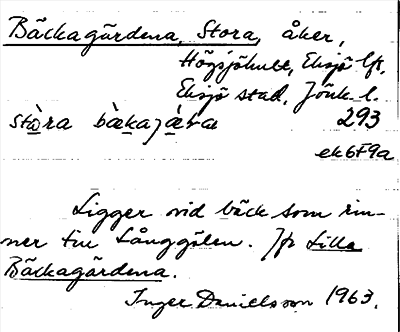 Bäckagärdena, Stora, åker,
Högsjöhult, Eksjö lfs,
Eksjö stad, Jönk. l.
stòra bæ̀kajæ̀ra 293
ek6F9a
Ligger vid bäck som rin-
ner till Långgölen. Jfr Lilla
Bäckagärdena.
Inger Danielsson 1963.